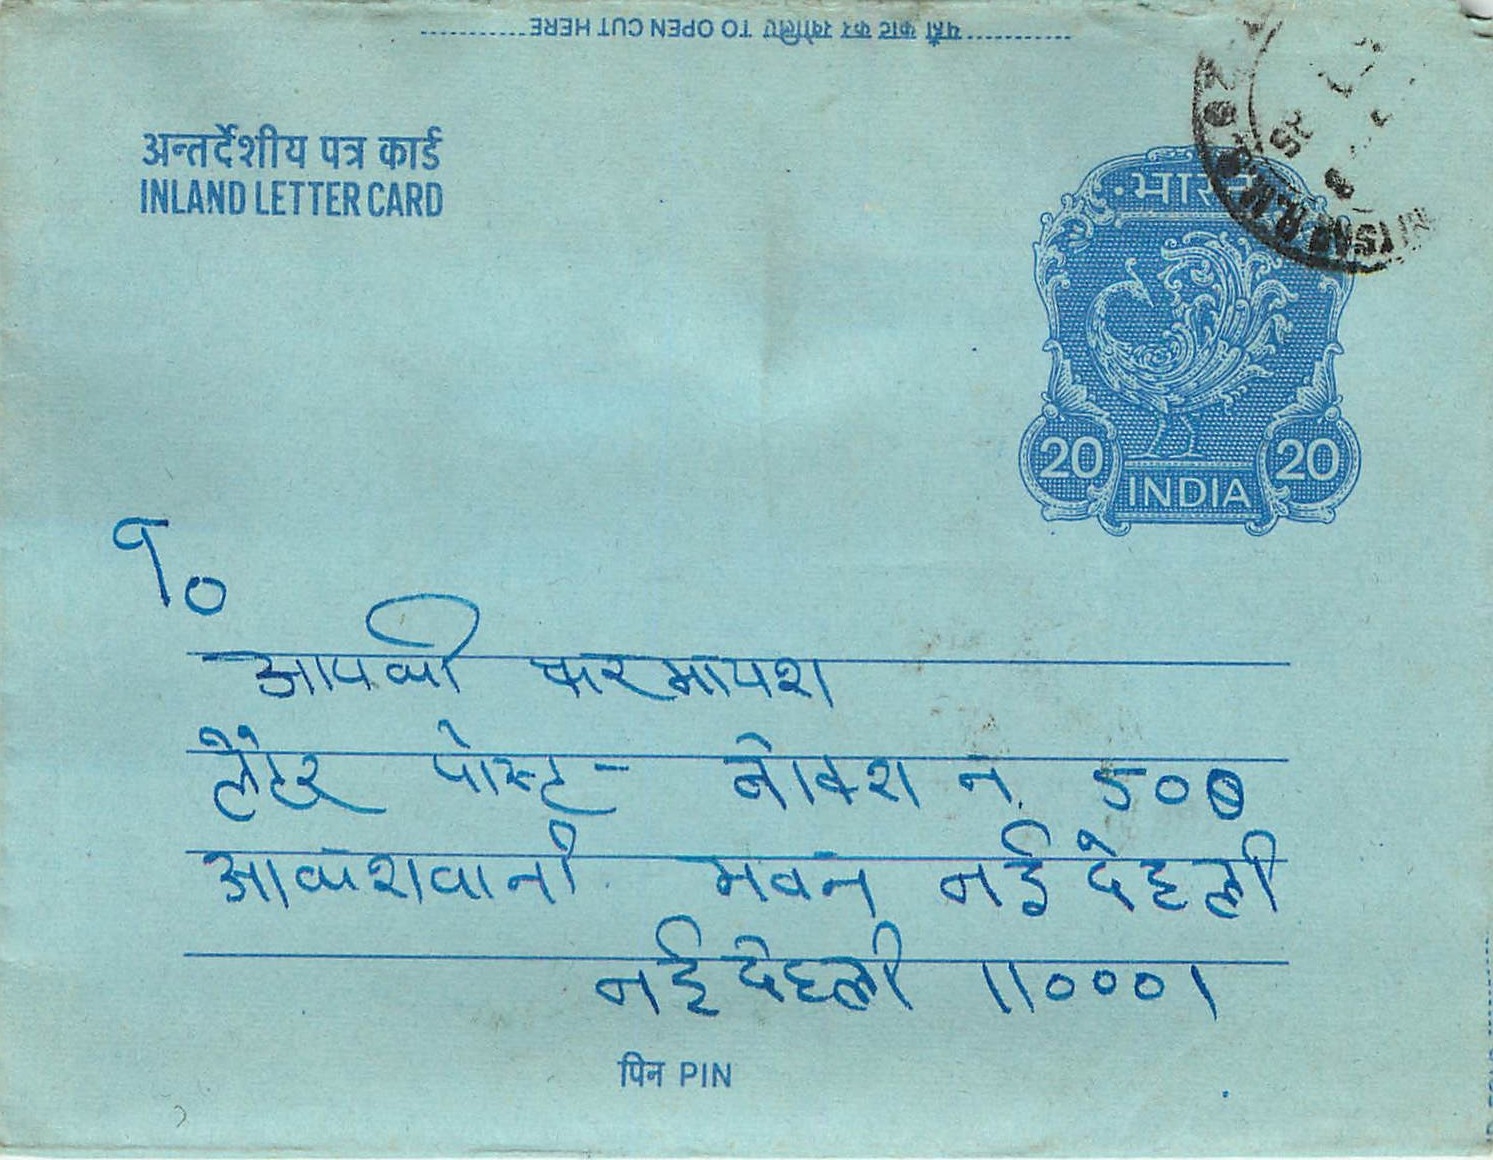 यहाँ काट कर खोलिए TO OPEN CUT HERE
अन्तर्देशीय पत्र कार्ड
INLAND LETTER CARD
भारत
20 20
INDIA
To
आपकी फरमायश
लैटर पोस्ट - बोक्श न. 500
आकाशवानी भवन नई देहली
नई देहली 110001
पिन PIN